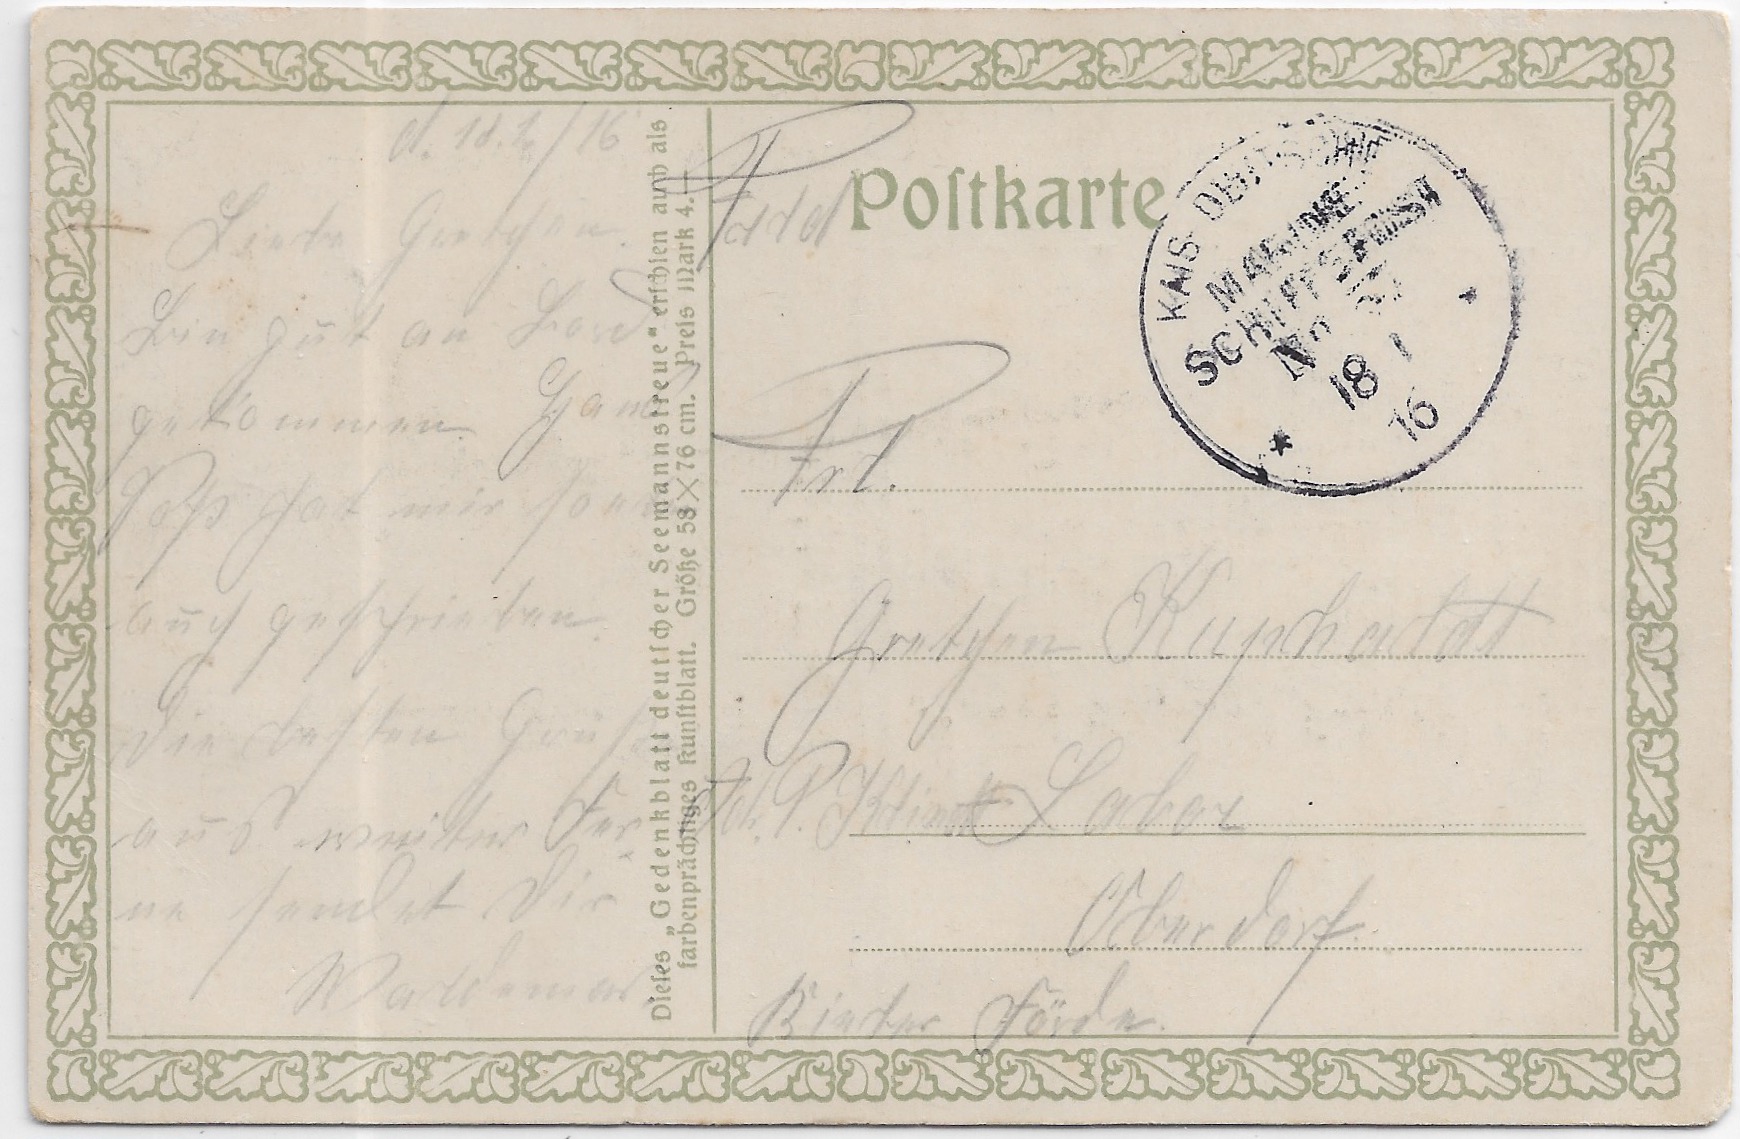 d. 18.1./16
Liebe Gretchen.
Bin gut an Bord
gekommen. Hans
hat mir soeben
auch geschrieben.
Die besten Grüße
aus weiter Fer-
ne sendet Dir
Waldemar.
Dieses „Gedenkblatt deutscher Seemannstreue“ erschien auch als
farbenprächtiges Kunstblatt. Größe 58×76 cm. Preis Mark 4.
Postkarte
KAIS. DEUTSCHE
MARINE
SCHIFFSPOST
No
18 1
16
Frl.
Gretchen
Laboe
Oberdorf.
Kieler Förde.